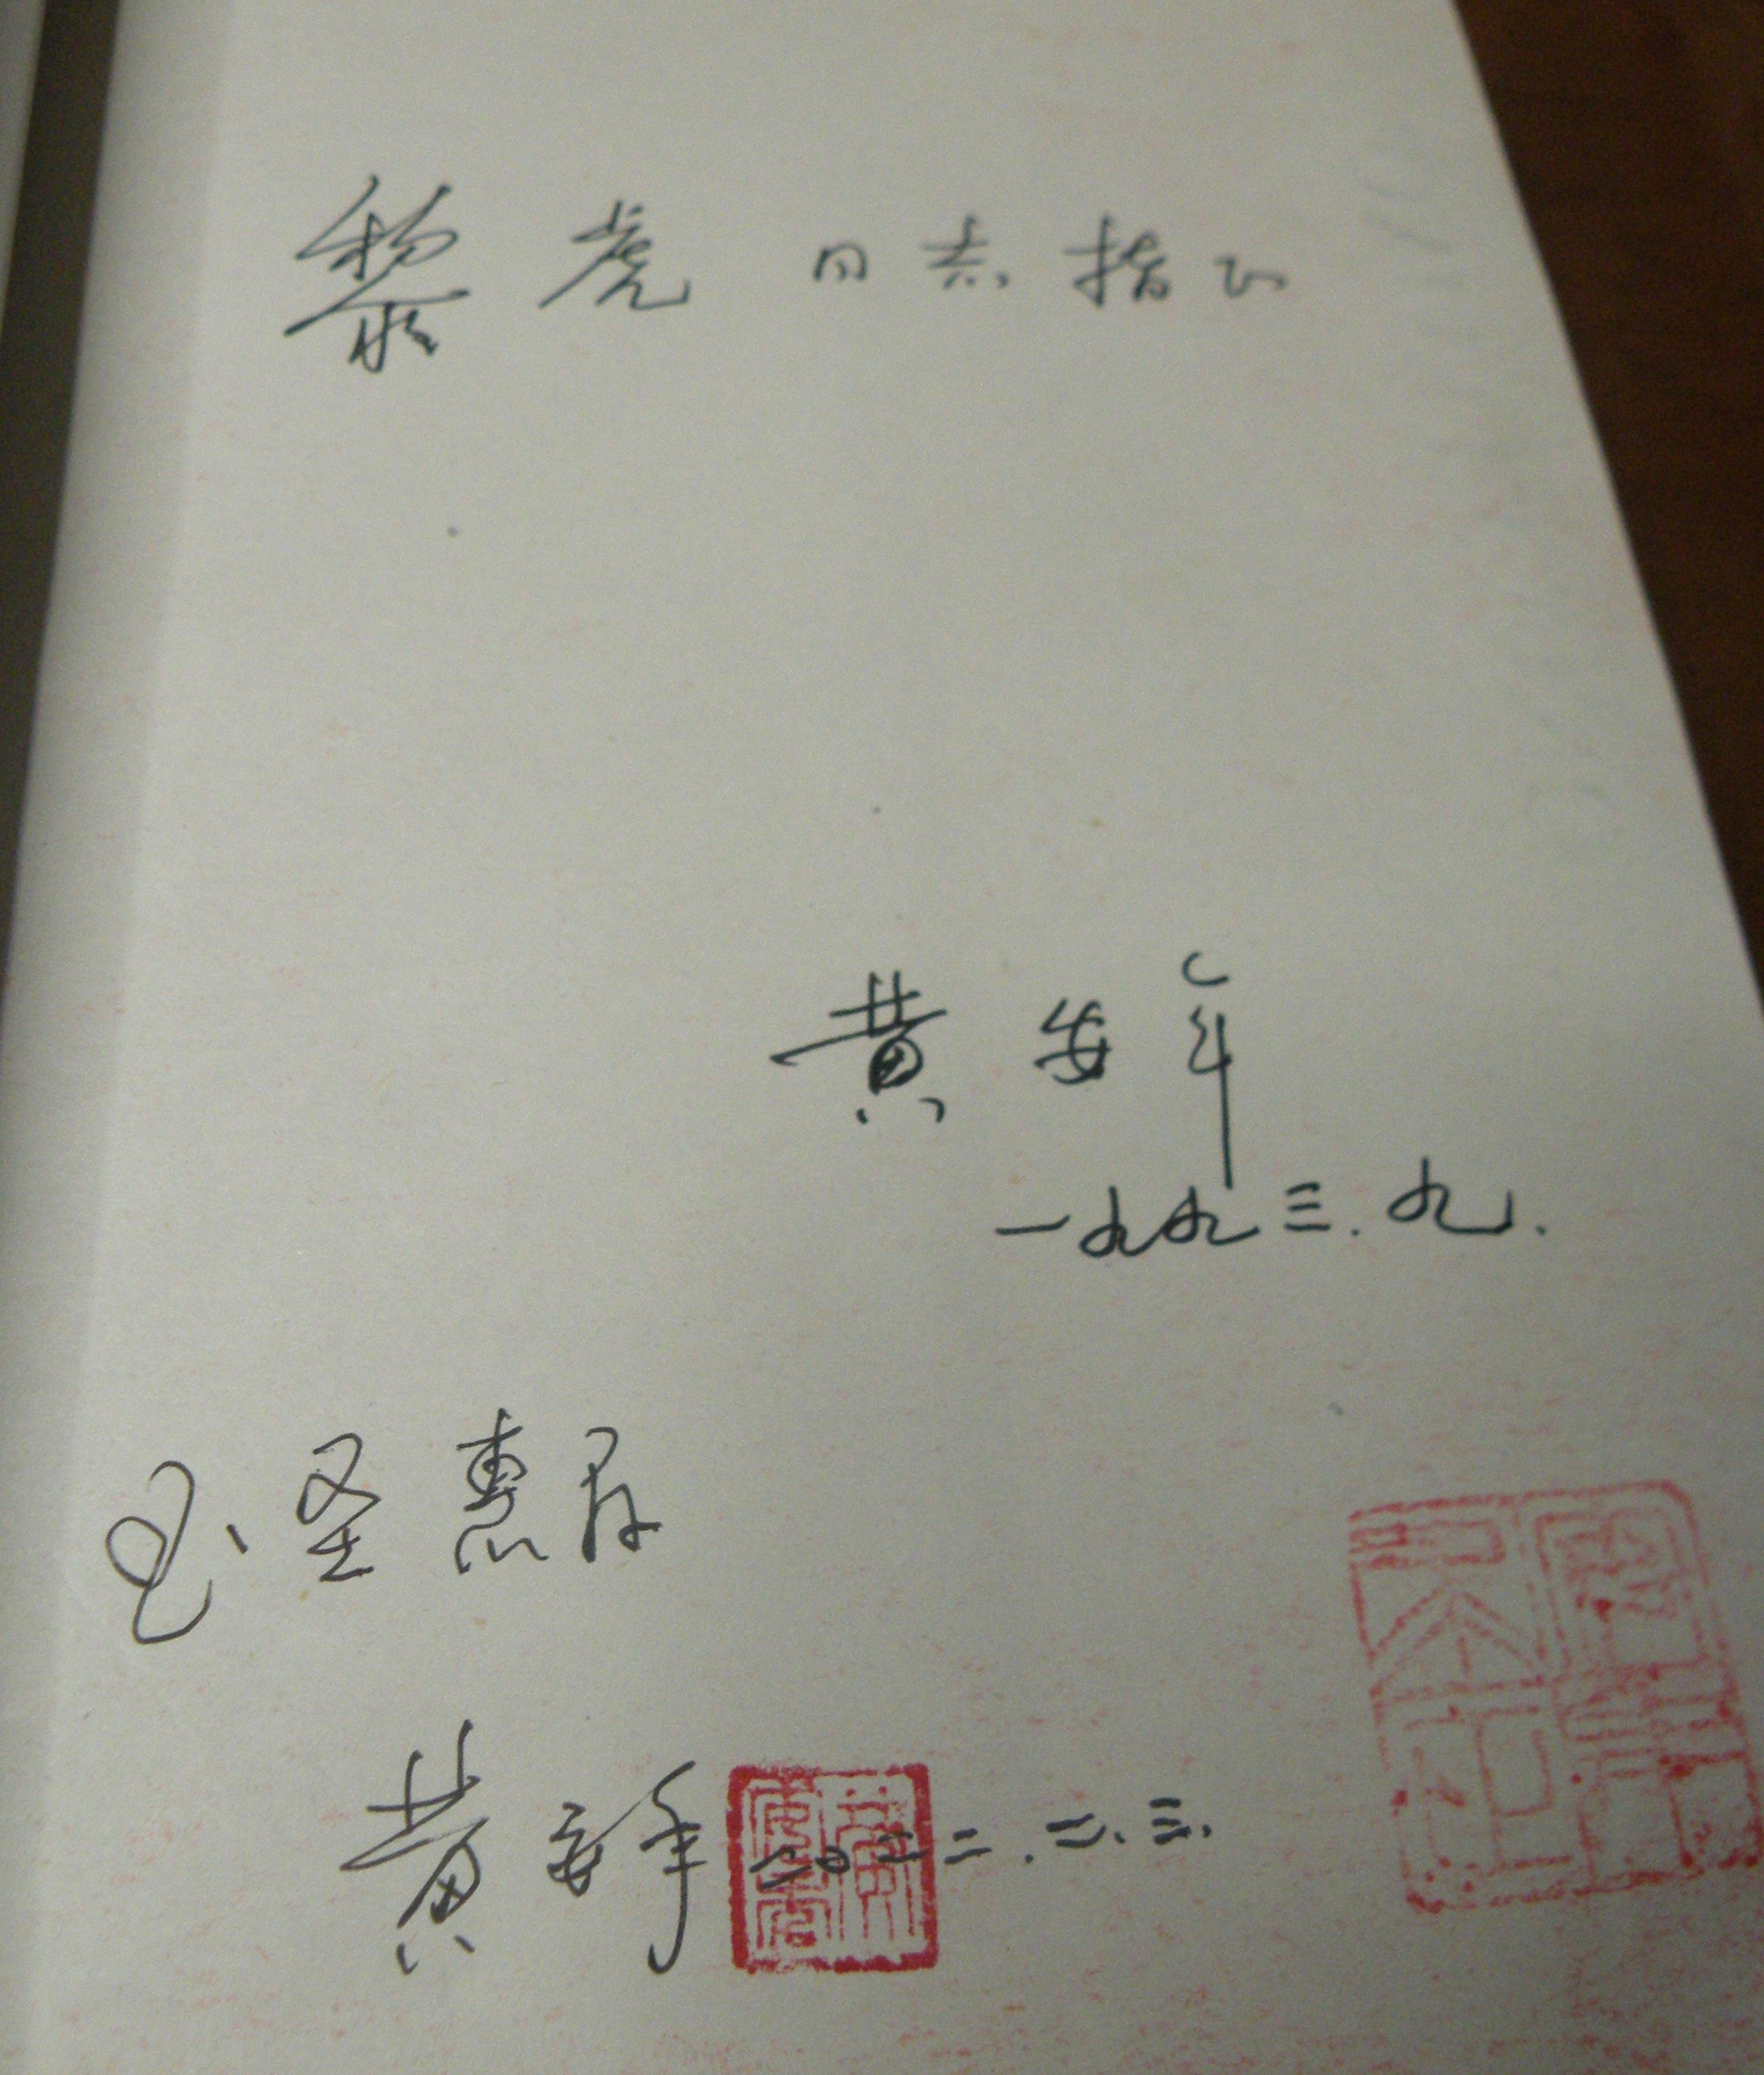 黎虎 同志指正
黄安年
一九九三.九.
圣惠存
黄安年 二〇一二.二.三.